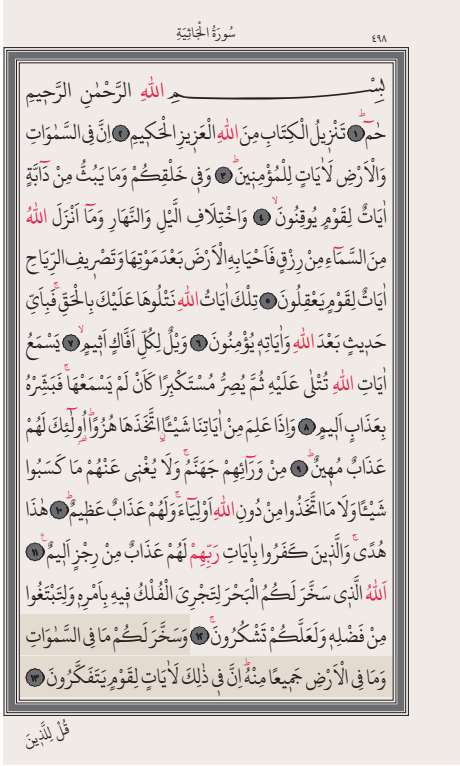 سُورَةُ الْجَاثِيَةِ
٤٩٨
بِسْمِ اللّٰهِ الرَّحْمٰنِ الرَّح۪يمِ
حٰمٓۜ ﴿١﴾ تَنْز۪يلُ الْكِتَابِ مِنَ اللّٰهِ الْعَز۪يزِ الْحَك۪يمِ ﴿٢﴾ اِنَّ فِي السَّمٰوَاتِ
وَالْاَرْضِ لَاٰيَاتٍ لِلْمُؤْمِن۪ينَۜ ﴿٣﴾ وَف۪ي خَلْقِكُمْ وَمَا يَبُثُّ مِنْ دَٓابَّةٍ
اٰيَاتٌ لِقَوْمٍ يُوقِنُونَۙ ﴿٤﴾ وَاخْتِلَافِ الَّيْلِ وَالنَّهَارِ وَمَٓا اَنْزَلَ اللّٰهُ
مِنَ السَّمَٓاءِ مِنْ رِزْقٍ فَاَحْيَا بِهِ الْاَرْضَ بَعْدَ مَوْتِهَا وَتَصْر۪يفِ الرِّيَاحِ
اٰيَاتٌ لِقَوْمٍ يَعْقِلُونَ ﴿٥﴾ تِلْكَ اٰيَاتُ اللّٰهِ نَتْلُوهَا عَلَيْكَ بِالْحَقِّۚ فَبِاَيِّ
حَد۪يثٍ بَعْدَ اللّٰهِ وَاٰيَاتِه۪ يُؤْمِنُونَ ﴿٦﴾ وَيْلٌ لِكُلِّ اَفَّاكٍ اَث۪يمٍۙ ﴿٧﴾ يَسْمَعُ
اٰيَاتِ اللّٰهِ تُتْلٰى عَلَيْهِ ثُمَّ يُصِرُّ مُسْتَكْبِرًا كَاَنْ لَمْ يَسْمَعْهَاۚ فَبَشِّرْهُ
بِعَذَابٍ اَل۪يمٍ ﴿٨﴾ وَاِذَا عَلِمَ مِنْ اٰيَاتِنَا شَيْـًٔاۨ اتَّخَذَهَا هُزُوًاۜ اُو۬لٰٓئِكَ لَهُمْ
عَذَابٌ مُه۪ينٌۜ ﴿٩﴾ مِنْ وَرَٓائِهِمْ جَهَنَّمُۚ وَلَا يُغْن۪ي عَنْهُمْ مَا كَسَبُوا
شَيْـًٔا وَلَا مَا اتَّخَذُوا مِنْ دُونِ اللّٰهِ اَوْلِيَٓاءَۚ وَلَهُمْ عَذَابٌ عَظ۪يمٌۜ ﴿١٠﴾ هٰذَا
هُدًىۚ وَالَّذ۪ينَ كَفَرُوا بِاٰيَاتِ رَبِّهِمْ لَهُمْ عَذَابٌ مِنْ رِجْزٍ اَل۪يمٌ۟ ﴿١١﴾
اَللّٰهُ الَّذ۪ي سَخَّرَ لَكُمُ الْبَحْرَ لِتَجْرِيَ الْفُلْكُ ف۪يهِ بِاَمْرِه۪ وَلِتَبْتَغُوا
مِنْ فَضْلِه۪ وَلَعَلَّكُمْ تَشْكُرُونَۚ ﴿١٢﴾ وَسَخَّرَ لَكُمْ مَا فِي السَّمٰوَاتِ
وَمَا فِي الْاَرْضِ جَم۪يعًا مِنْهُۜ اِنَّ ف۪ي ذٰلِكَ لَاٰيَاتٍ لِقَوْمٍ يَتَفَكَّرُونَ ﴿١٣﴾
قُلْ لِلَّذ۪ينَ